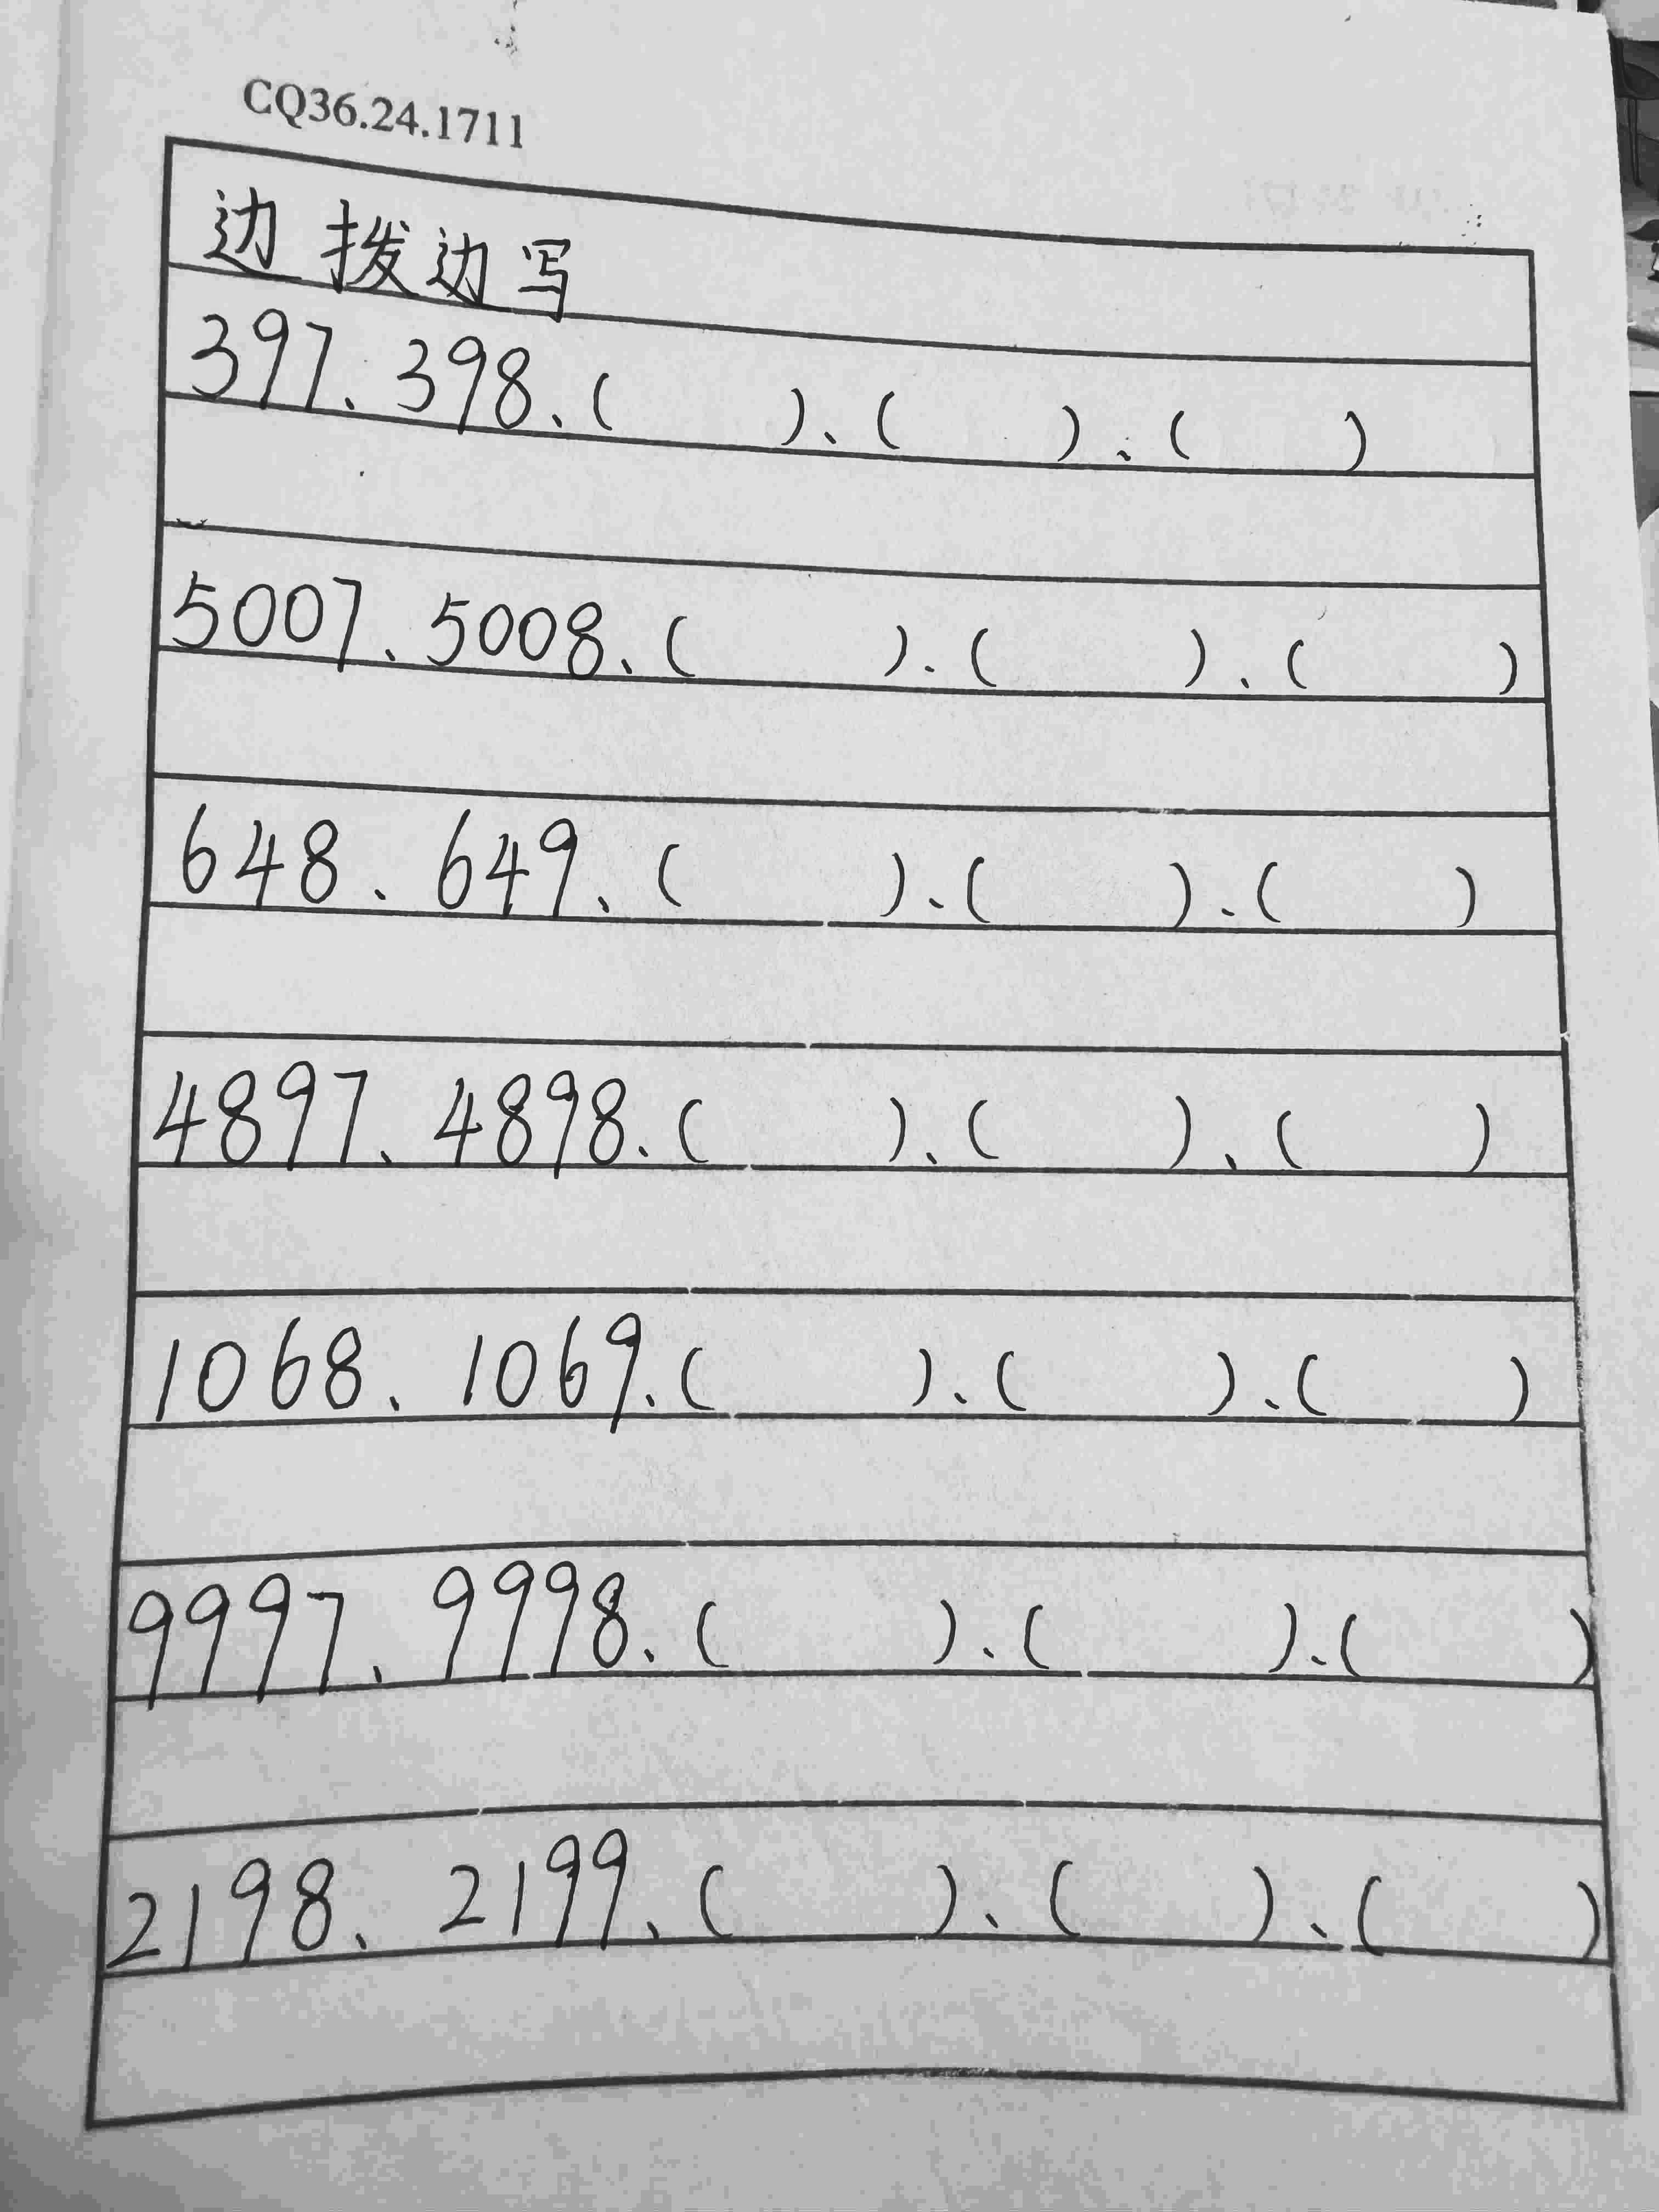 CQ36.24.1711
边拨边写
397、398、(    )、(    )、(    )
5007、5008、(    )、(    )、(    )
648、649、(    )、(    )、(    )
4897、4898、(    )、(    )、(    )
1068、1069、(    )、(    )、(    )
9997、9998、(    )、(    )、(    )
2198、2199、(    )、(    )、(    )